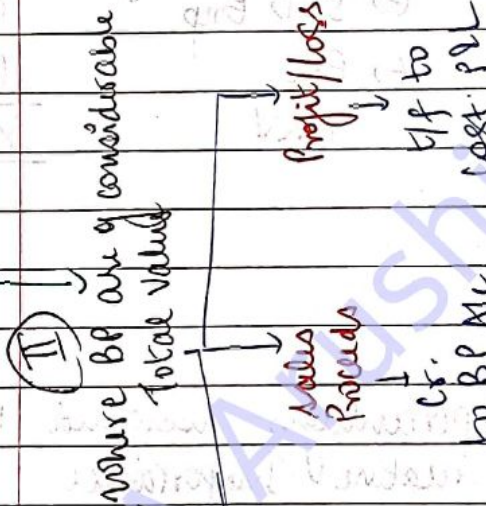 II
where BP are of considerable
Total value
Sales
Proceeds
Cr.
to BP A/c
Profit/Loss
t/f to
cost. P&L
Arushi